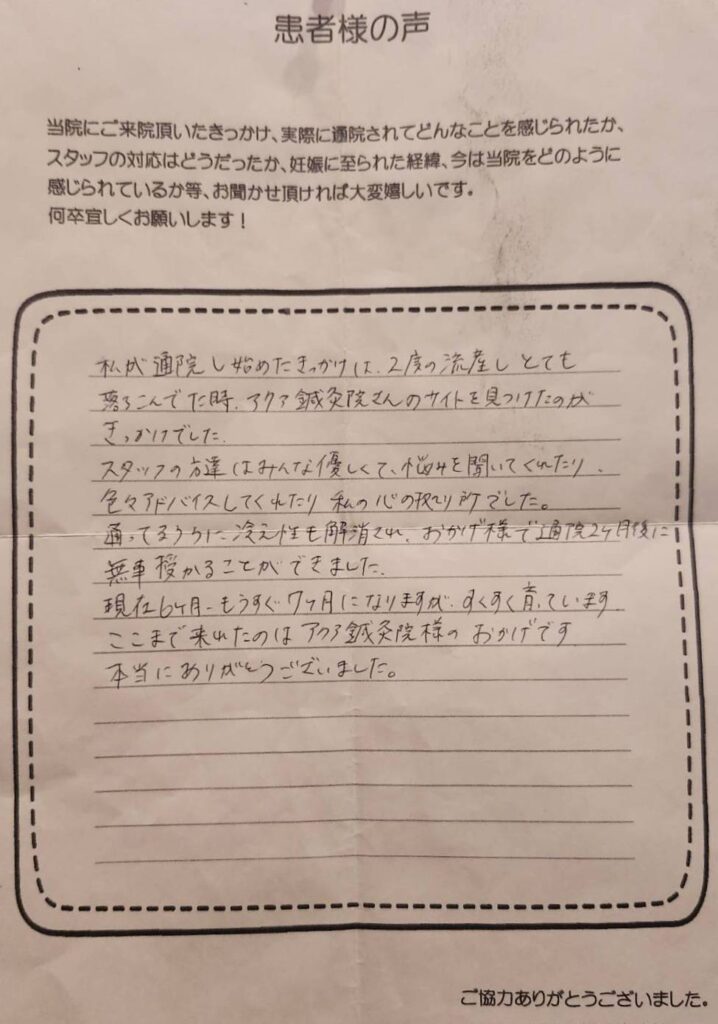 患者様の声
当院にご来院頂いたきっかけ、実際に通院されてどんなことを感じられたか、
スタッフの対応はどうだったか、妊娠に至られた経緯、今は当院をどのように
感じられているか等、お聞かせ頂ければ大変嬉しいです。
何卒宜しくお願いします!
私が通院し始めたきっかけは、2度の流産しとても
落ちこんでた時、アクア鍼灸院さんのサイトを見つけたのが
きっかけでした。
スタッフの方達はみんな優しくて、悩みを聞いてくれたり、
色々アドバイスしてくれたり 私の心の拠り所でした。
通ってるうちに冷え性も解消され、おかげ様で通院2ヶ月後に
無事授かることができました。
現在6ヶ月、もうすぐ7ヶ月になりますが、すくすく育っています
ここまで来れたのはアクア鍼灸院様のおかげです
本当にありがとうございました。
ご協力ありがとうございました。